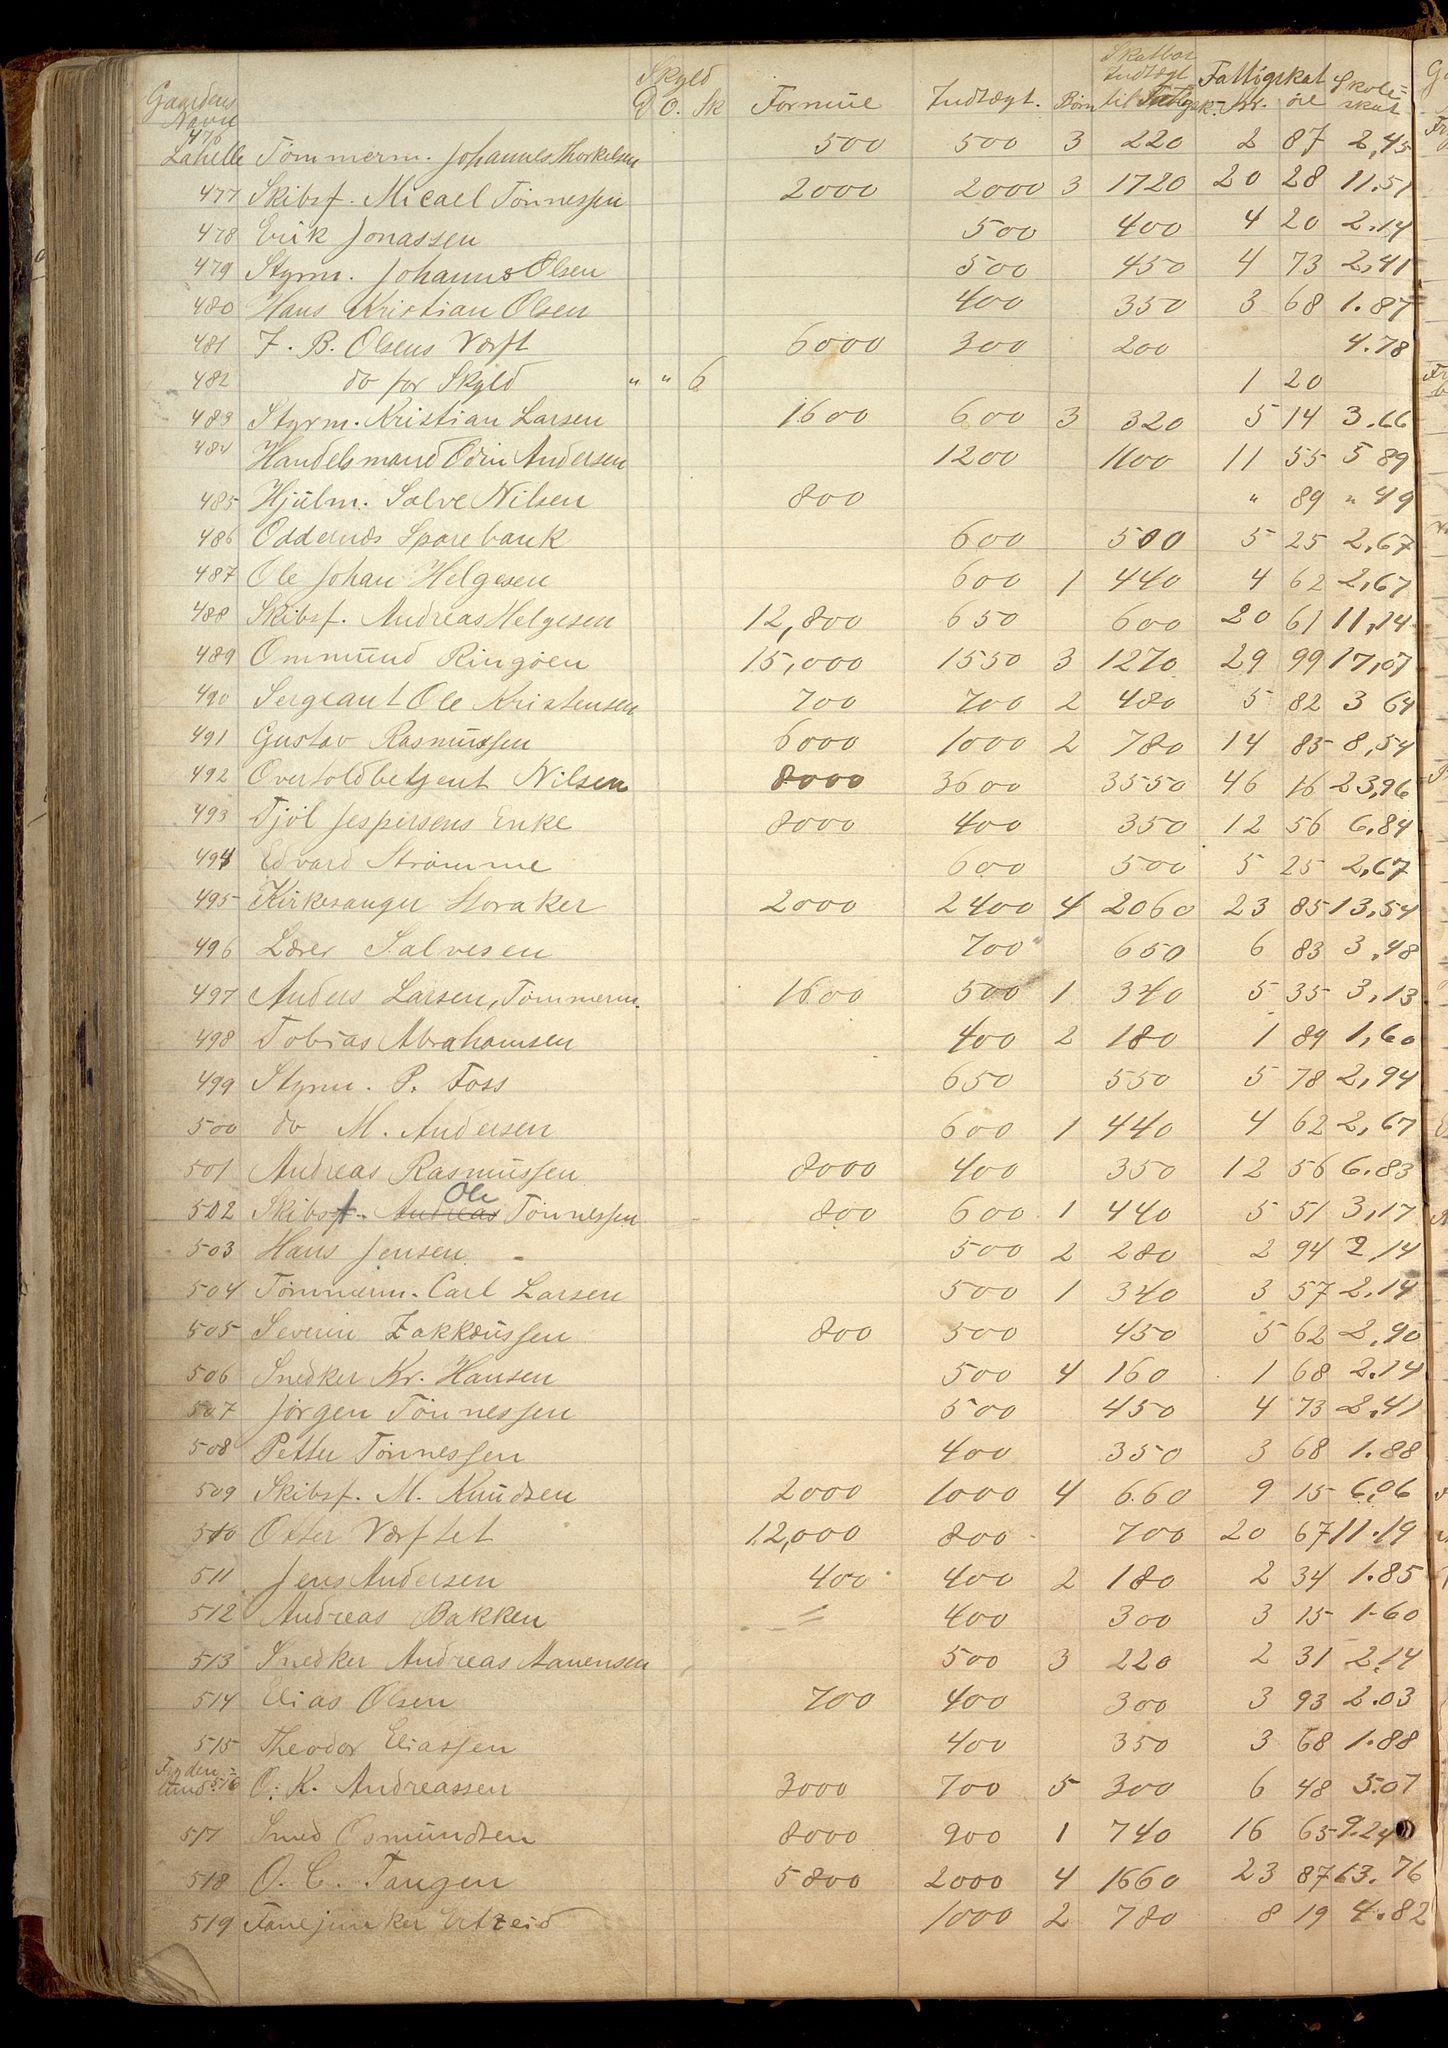 Gaardens Navn Skyld D. O. Sk Formue Indtægt. Børn Skatbar Indtægt til Fattigsk. Fattigskat Kr. öre Skoleskat
476
Lahelle Tömmerm. Johannes Thorkelsen 500 500 3 220 2 87 2,45
477 Skibsf. Micael Tönnessen 2000 2000 3 1720 20 28 11.51
478 Erik Jonassen 500 400 4 20 2.14
479 Styrm. Johannes Olsen 500 450 4 73 2,41
480 Hans Kristian Olsen 400 350 3 68 1.87
481 F. B. Olsens Værft 6000 300 200 4.78
482 do for Skyld " " 6 1 20
483 Styrm. Kristian Larsen 1600 600 3 320 5 14 3.66
484 Handelsmand Odin Andersen 1200 1100 11 55 5 89
485 Hjülm. Salve Nilsen 800 " 89 " 49
486 Oddernæs Sparebank 600 500 5 25 2,67
487 Ole Johan Helgesen 600 1 440 4 62 2,67
488 Skibsf. Andreas Helgesen 12,800 650 600 20 61 11,14
489 Ommund Ringöen 15,000 1550 3 1270 29 99 17,07
490 Sergeant Ole Kristensen 700 700 2 480 5 82 3 64
491 Gustav Rasmussen 6000 1000 2 780 14 85 8,54
492 Overtoldbetjent Nilsen 8000 3600 3550 46 16 23,96
493 Tjöl Jespersens Enke 8000 400 350 12 56 6,84
494 Edvard Strömme 600 500 5 25 2,67
495 Kirkesanger Storaker 2000 2400 4 2060 23 85 13,54
496 Lærer Salvesen 700 650 6 83 3,48
497 Anders Larsen, Tömmerm. 1600 500 1 340 5 35 3,13
498 Tobias Abrahamsen 400 2 180 1 89 1,60
499 Styrm. P. Foss 650 550 5 78 2,94
500 do M. Andersen 600 1 440 4 62 2,67
501 Andreas Rasmussen 8000 400 350 12 56 6.83
502 Skibsf. Andreas Ole Tönnessen 800 600 1 440 5 51 3,17
503 Hans Jensen 500 2 280 2 94 2 14
504 Tömmerm. Carl Larsen 500 1 340 3 57 2.14
505 Severin Zakkæussen 800 500 450 5 62 2,90
506 Snedker Kr. Hansen 500 4 160 1 68 2.14
507 Jörgen Tönnessen 500 450 4 73 2,41
508 Petter Tönnessen 400 350 3 68 1.88
509 Skibsf. M. Knudsen 2000 1000 4 660 9 15 6,06
510 Oster Værftet 12,000 800 700 20 67 11.19
511 Jens Andersen 400 400 2 180 2 34 1.85
512 Andreas Bakken 400 300 3 15 1-60
513 Snedker Andreas Aanensen 500 3 220 2 31 2.14
514 Elias Olsen 700 400 300 3 93 2.03
515 Theodor Eliassen 400 350 3 68 1.88
Frydenlund 516 O. K. Andreassen 3000 700 5 300 6 48 5.07
517 Smed Osmundsen 8000 900 1 740 16 65 9.24
518 O. C. Tangen 5800 2000 4 1660 23 87 13.76
519 Fanejunker Ertzeid 1000 2 780 8 19 4.82